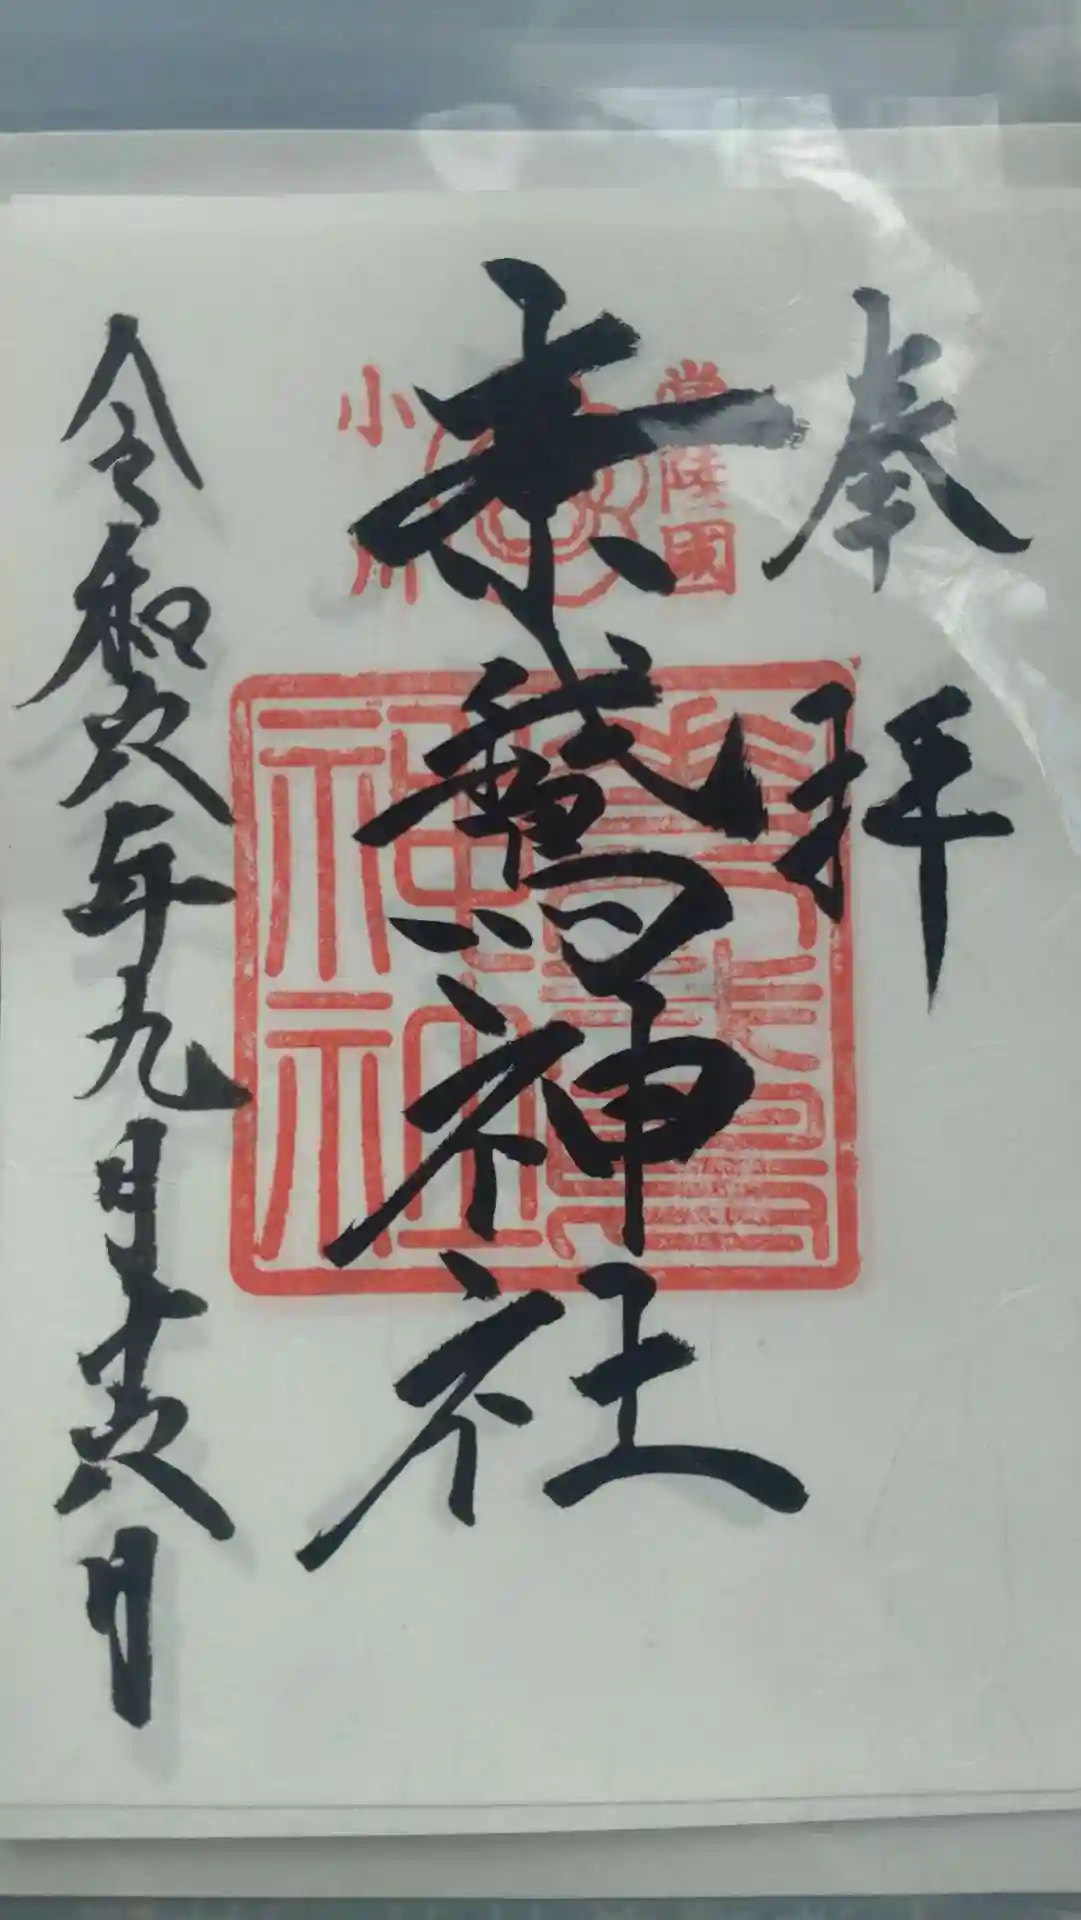 奉拝
常陸國
素鵞神社
小川
素鵞神社
令和六年九月十六日